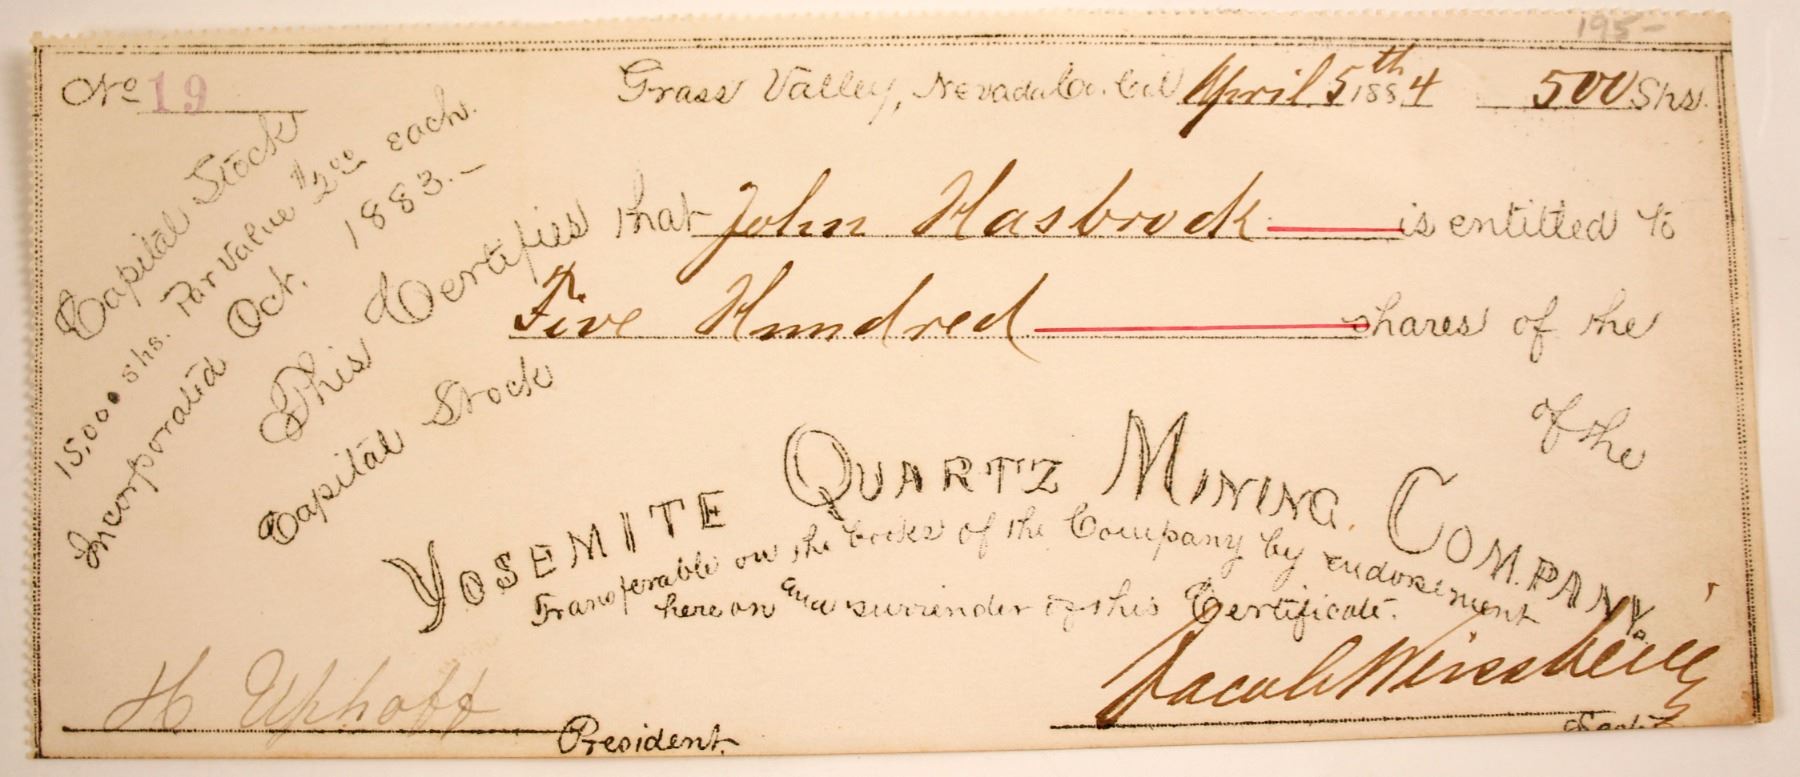 195-
No 19
Grass Valley, Nevada Co. Cal April 5th 1884 500 Shs.
Capital Stock
15,000 shs. Par Value $2.00 each.
Incorporated Oct. 1883.-
This Certifies that John Hasbrock is entitled to
Five Hundred shares of the
Capital Stock of the
YOSEMITE QUARTZ MINING COMPANY.
Transferable on the books of the Company by endorsement
hereon and surrender of this Certificate.
H Uphoff President.
Jacob Weissbein Sect.